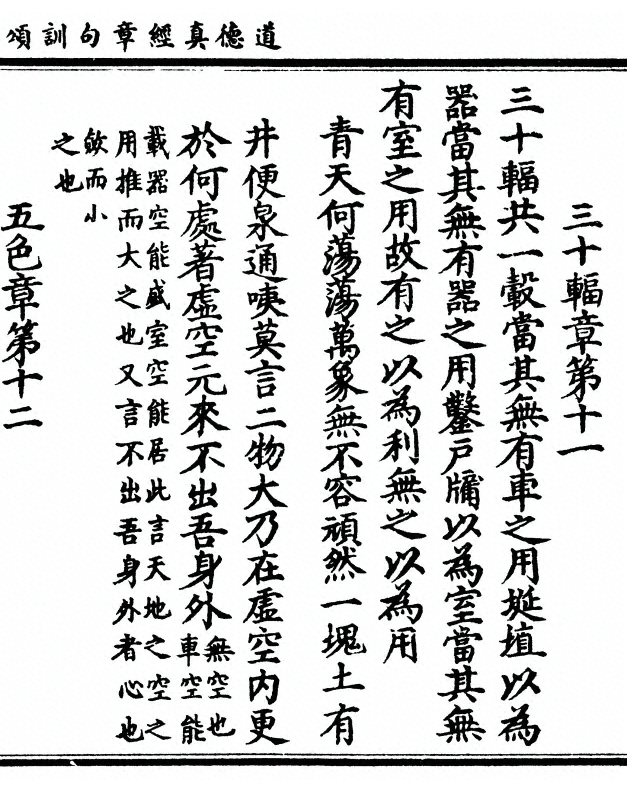 道德真經章句訓頌
三十輻章第十一
三十輻共一轂當其無有車之用埏埴以為
器當其無有器之用鑿戶牖以為室當其無
有室之用故有之以為利無之以為用
青天何蕩蕩萬象無不容頑然一塊土有
井便泉通咦莫言二物大乃在虛空內更
於何處著虛空元來不出吾身外
無空也
車空能
載器空能盛室空能居此言天地之空之
用推而大之也又言不出吾身外者心也
歛而小
之也
五色章第十二